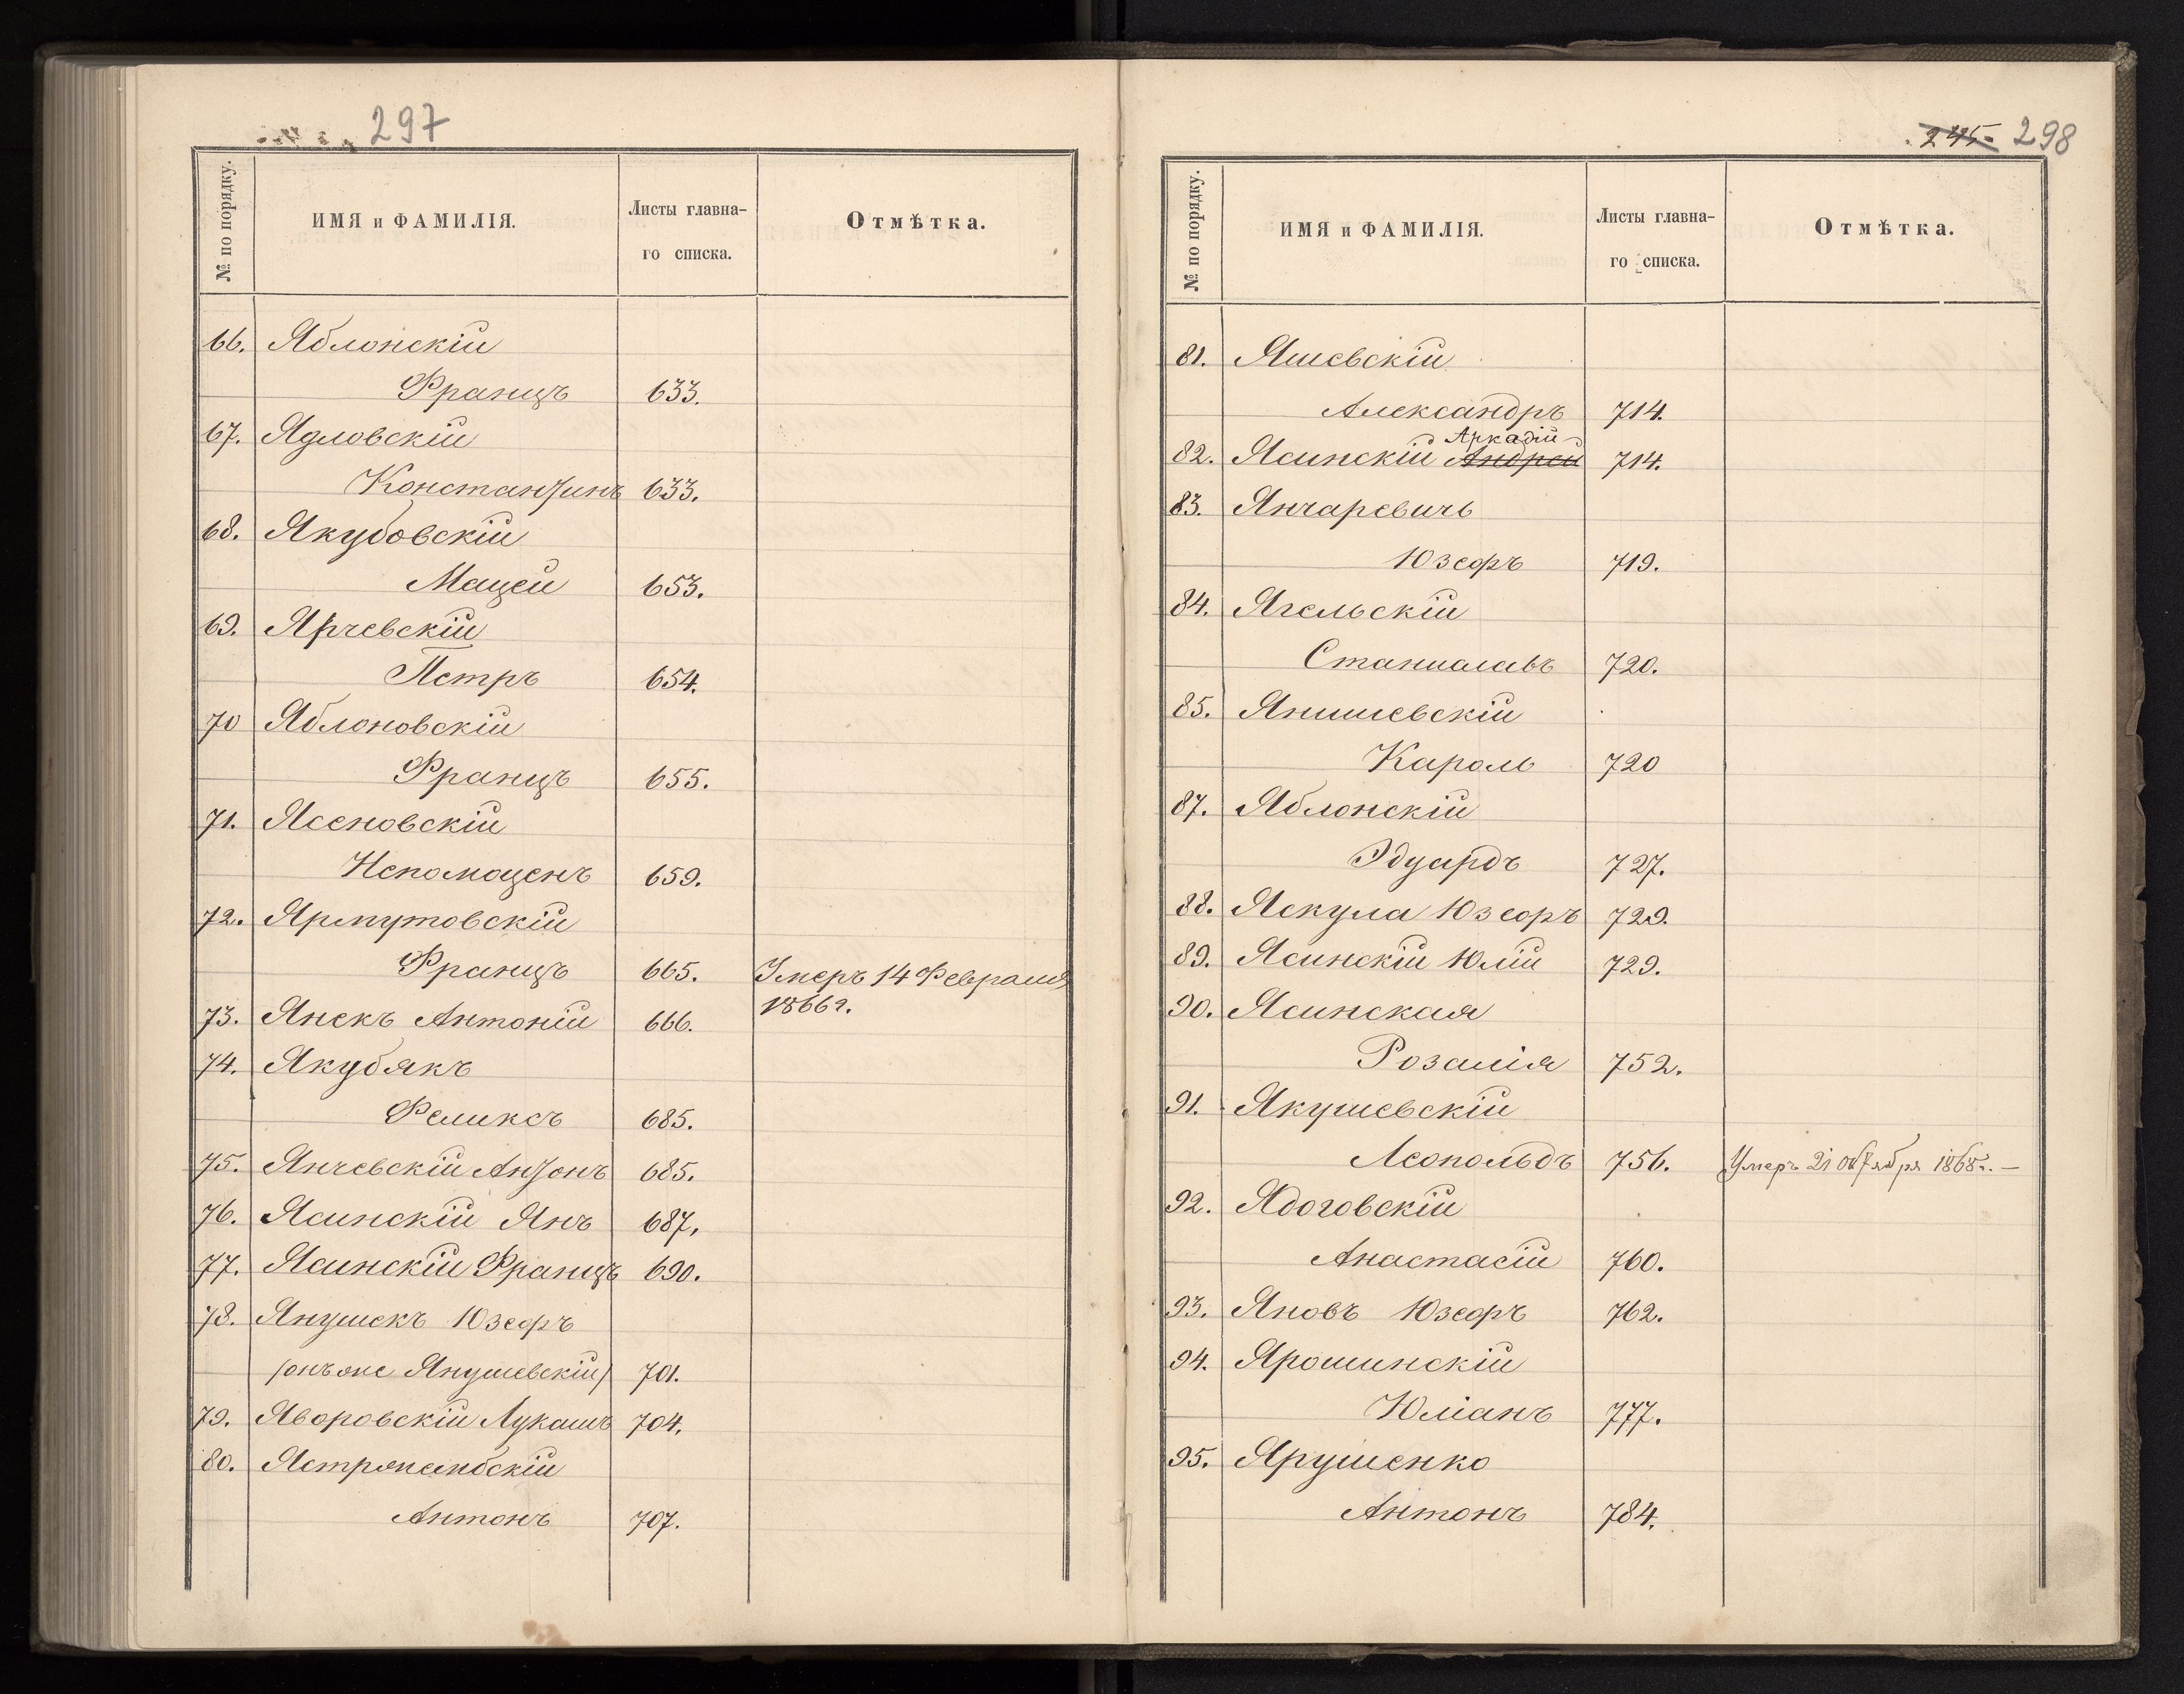 297
№ по порядку.
ИМЯ и ФАМИЛІЯ.
Листы главна-
го списка.
Отмѣтка.
66. Яблонскій
Францъ 633.
67. Ядловскій
Константинъ 633.
68. Якубовскій
Мацей 653.
69. Ярчевскій
Петръ 654.
70 Яблоновскій
Францъ 655.
71. Ясеновскій
Непомоценъ 659.
72. Ярмутовскій
Францъ 665. Умеръ 14 Февраля
1866г.
73. Янекъ Антоній 666.
74. Якубякъ
Феликсъ 685.
75. Янчевскій Антонъ 685.
76. Ясинскій Янъ 687.
77. Ясинскій Францъ 690.
78. Янушекъ Юзефъ
/онъ же Янушевскій/ 701.
79. Яворовскій Лукашъ 704.
80. Ястржембскій
Антонъ 707.
245. 298
№ по порядку.
ИМЯ и ФАМИЛІЯ.
Листы главна-
го списка.
Отмѣтка.
81. Яшевскій
Александръ 714.
Аркадій
82. Ясинскій Андрей 714.
83. Янчаревичъ
Юзефъ 719.
84. Ягельскій
Станиславъ 720.
85. Янишевскій
Кароль 720
87. Яблонскій
Эдуардъ 727.
88. Яскула Юзефъ 729.
89. Ясинскій Юлій 729.
90. Ясинская
Розалія 752.
91. Якушевскій
Леопольдъ 756. Умеръ 21 октября 1868г. —
92. Ядоговскій
Анастасій 760.
93. Яновъ Юзефъ 762.
94. Ярошинскій
Юліанъ 777.
95. Ярушенко
Антонъ 784.